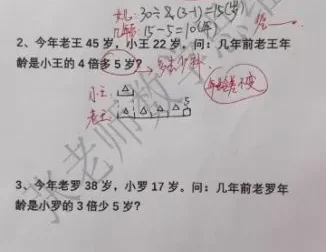 30÷2(3-1)=15(岁)
几年前 15-5=10(年)
2、今年老王 45 岁，小王 22 岁。问：几年前老王年
龄是小王的 4 倍多 5 岁?
年龄差不变
小王:
老王: 5
3、今年老罗 38 岁，小罗 17 岁。问：几年前老罗年
龄是小罗的 3 倍少 5 岁?
张老师数学